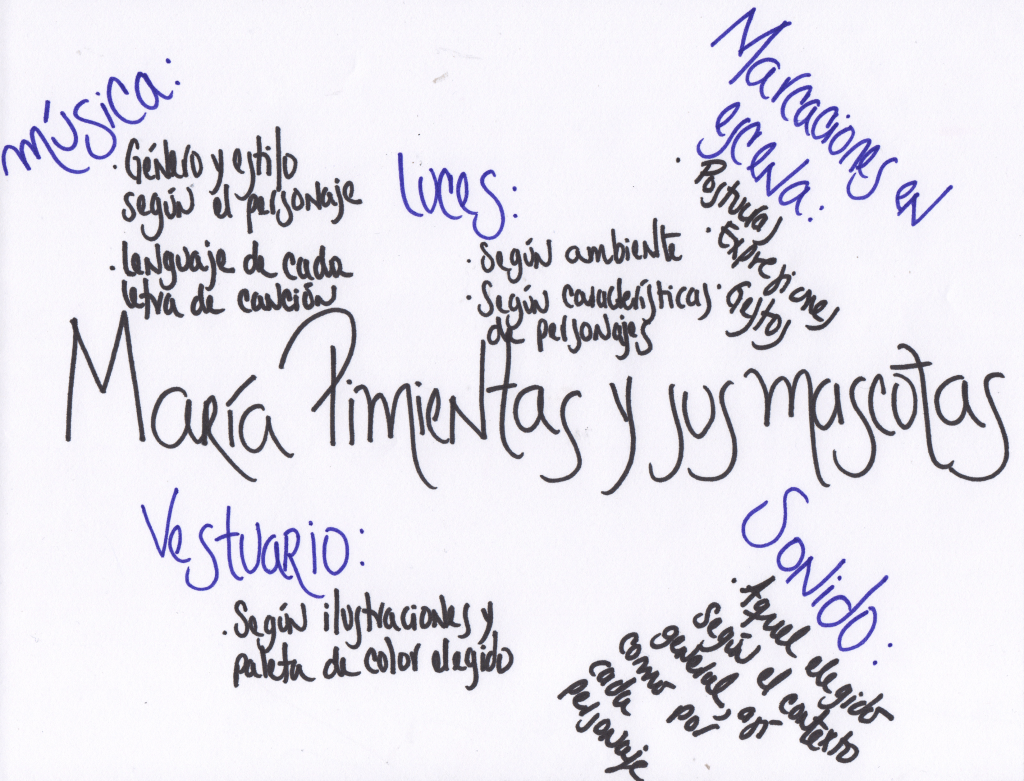 música:
· Género y estilo
según el personaje
· Lenguaje de cada
letra de canción
luces:
· Según ambiente
· Según características
de personajes
Marcaciones en
escena:
· Posturas
· Expresiones
· Gestos
María Pimientas y sus mascotas
Vestuario:
· Según ilustraciones y
paleta de color elegido
Sonido:
· Aquel elegido
según el contexto
general, así
como por
cada
personaje